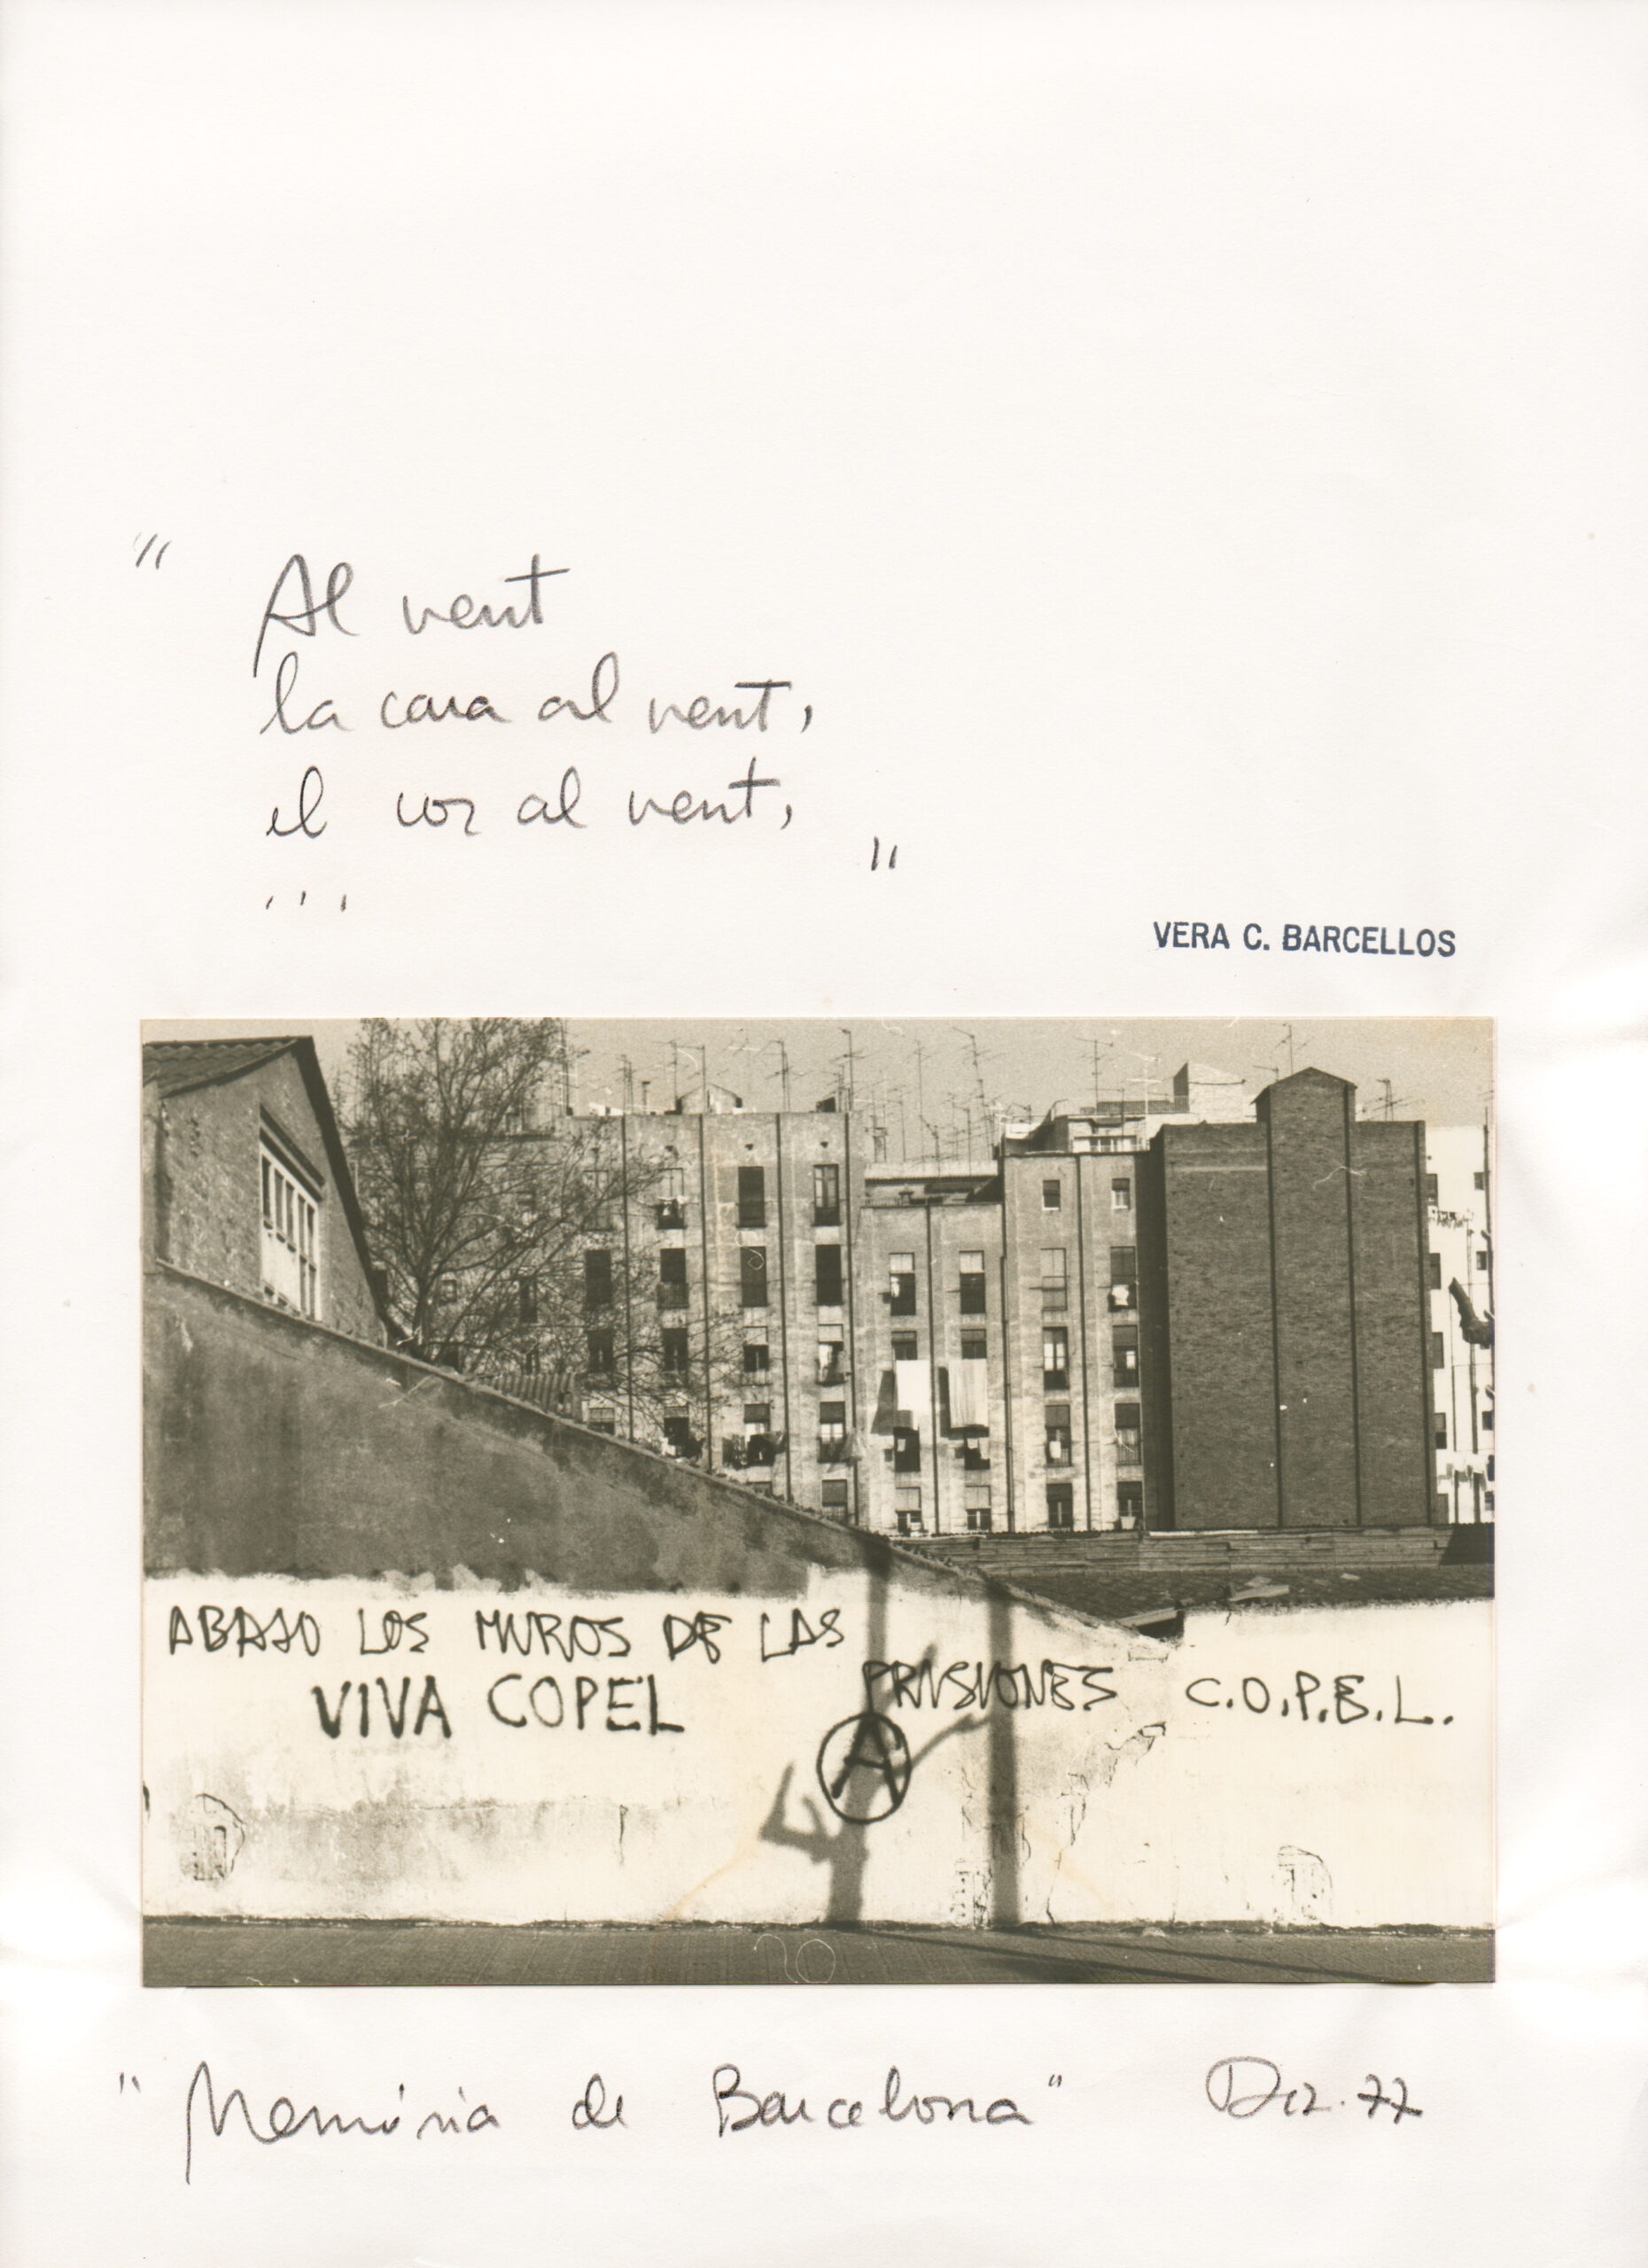 " Al vent
la cara al vent,
el cor al vent,
... "
VERA C. BARCELLOS
ABAJO LOS MUROS DE LAS
PRISIONES C.O.P.E.L.
VIVA COPEL
A
"Memória de Barcelona" Dez. 77